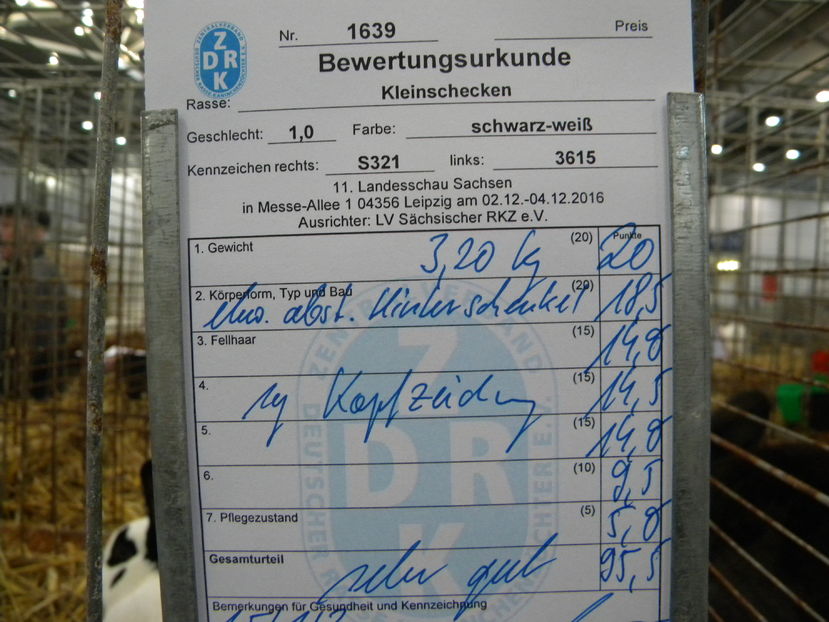 ZDRK
Nr. 1639 Preis
Bewertungsurkunde
Rasse: Kleinschecken
Geschlecht: 1,0 Farbe: schwarz-weiß
Kennzeichen rechts: S321 links: 3615
11. Landesschau Sachsen
in Messe-Allee 1 04356 Leipzig am 02.12.-04.12.2016
Ausrichter: LV Sächsischer RKZ e.V.
Punkte
1. Gewicht 3,20 kg (20) 20
2. Körperform, Typ und Bau (20)
etw. abst. Hinterschenkel 18,5
3. Fellhaar (15) 14,0
4. Kopfzeichng (15) 14,5
5. (15) 14,0
6. (10) 9,5
7. Pflegezustand (5) 5,0
Gesamturteil sehr gut 95,5
Bemerkungen für Gesundheit und Kennzeichnung